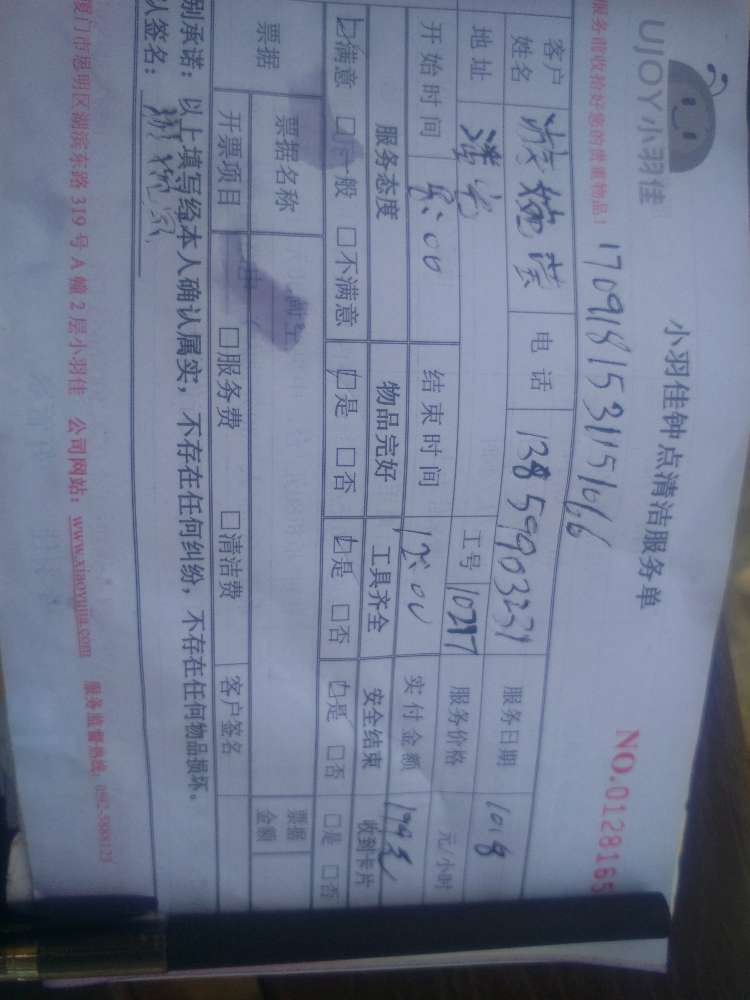 UJOY小羽佳
小羽佳钟点清洁服务单
NO.0128165
服务前收拾好您的贵重物品！
客户姓名 电话 13859903231 服务日期 10.8
地址 工号 服务价格 元/小时
开始时间 8:00 结束时间 12:00 实付金额
服务态度 物品完好 工具齐全 安全结束 收到卡片
☑满意 □一般 □不满意 ☑是 □否 ☑是 □否 ☑是 □否 □是 □否
票据 票据名称 票据金额
开票项目 □服务费 □清洁费 客户签名
别承诺：以上填写经本人确认属实，不存在任何纠纷，不存在任何物品损坏。
认签名：
厦门市思明区湖滨东路319号A幢2层小羽佳 公司网站：www.xiaoyujia.com 服务监督热线：